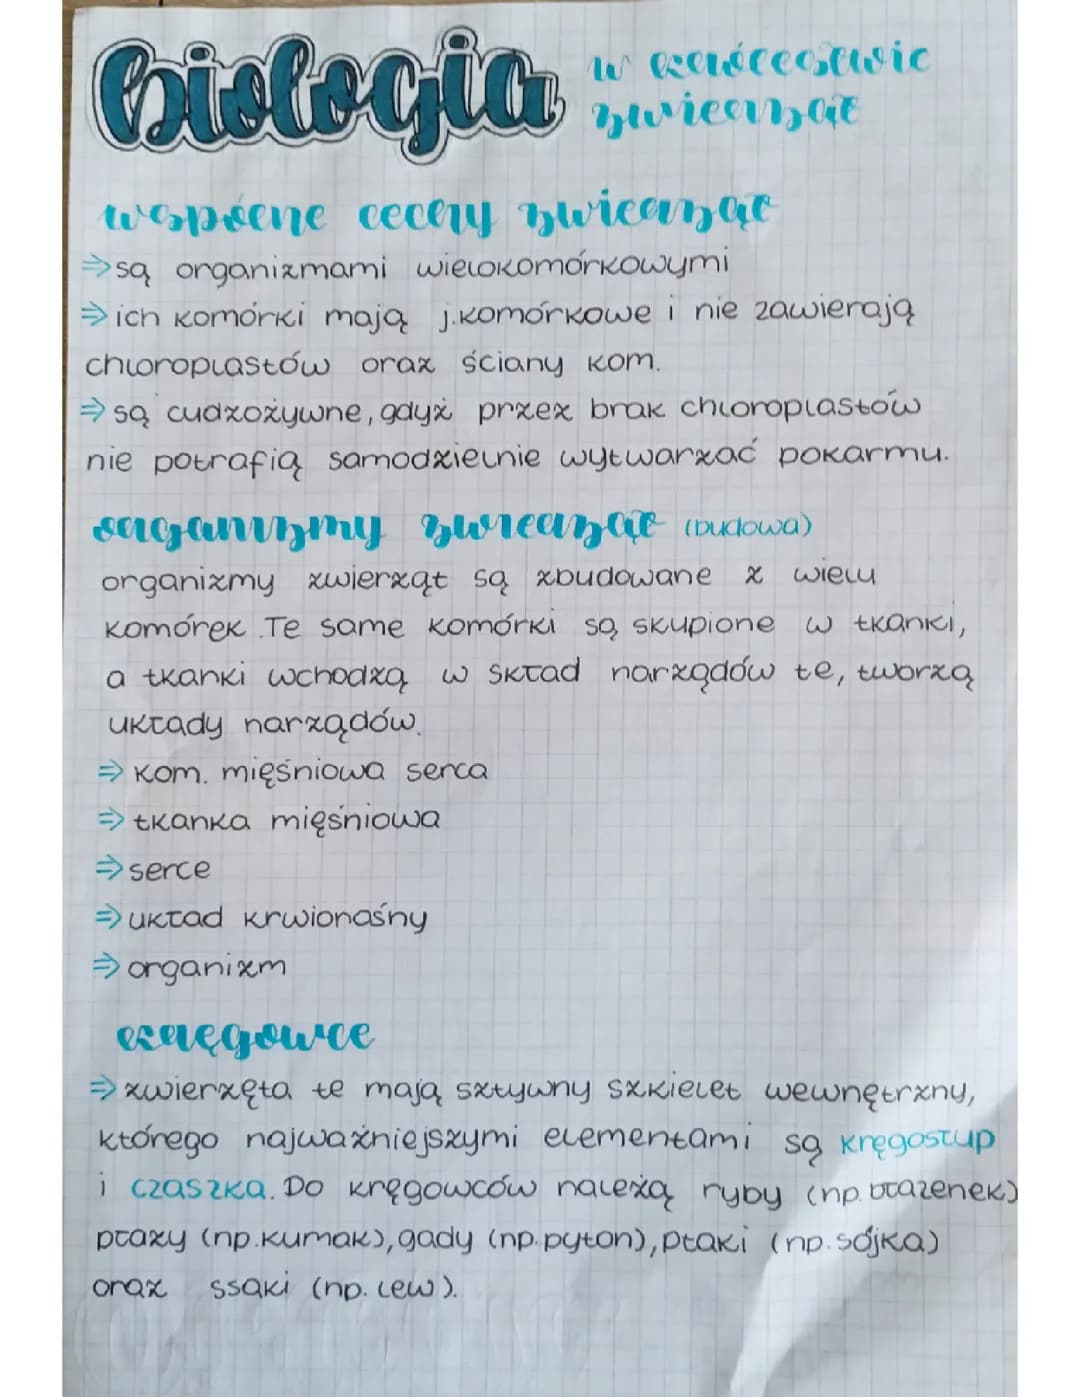 biologia
w królestwie
zwierząt
wspólne cechy zwierząt
⇒ są organizmami wielokomórkowymi
⇒ ich komórki mają j.komórkowe i nie zawierają
chloroplastów oraz ściany kom.
⇒ są cudzożywne, gdyż przez brak chloroplastów
nie potrafią samodzielnie wytwarzać pokarmu.
organizmy zwierząt (budowa)
organizmy zwierząt są zbudowane z wielu
komórek. Te same komórki są skupione w tkanki,
a tkanki wchodzą w skład narządów te, tworzą
układy narządów.
⇒ kom. mięśniowa serca
⇒ tkanka mięśniowa
⇒ serce
⇒ układ krwionośny
⇒ organizm
kręgowce
⇒ zwierzęta te mają sztywny szkielet wewnętrzny,
którego najważniejszymi elementami są kręgosłup
i czaszka. Do kręgowców należą ryby (np. błazenek)
płazy (np. kumak), gady (np. pyton), ptaki (np. sójka)
oraz ssaki (np. lew).